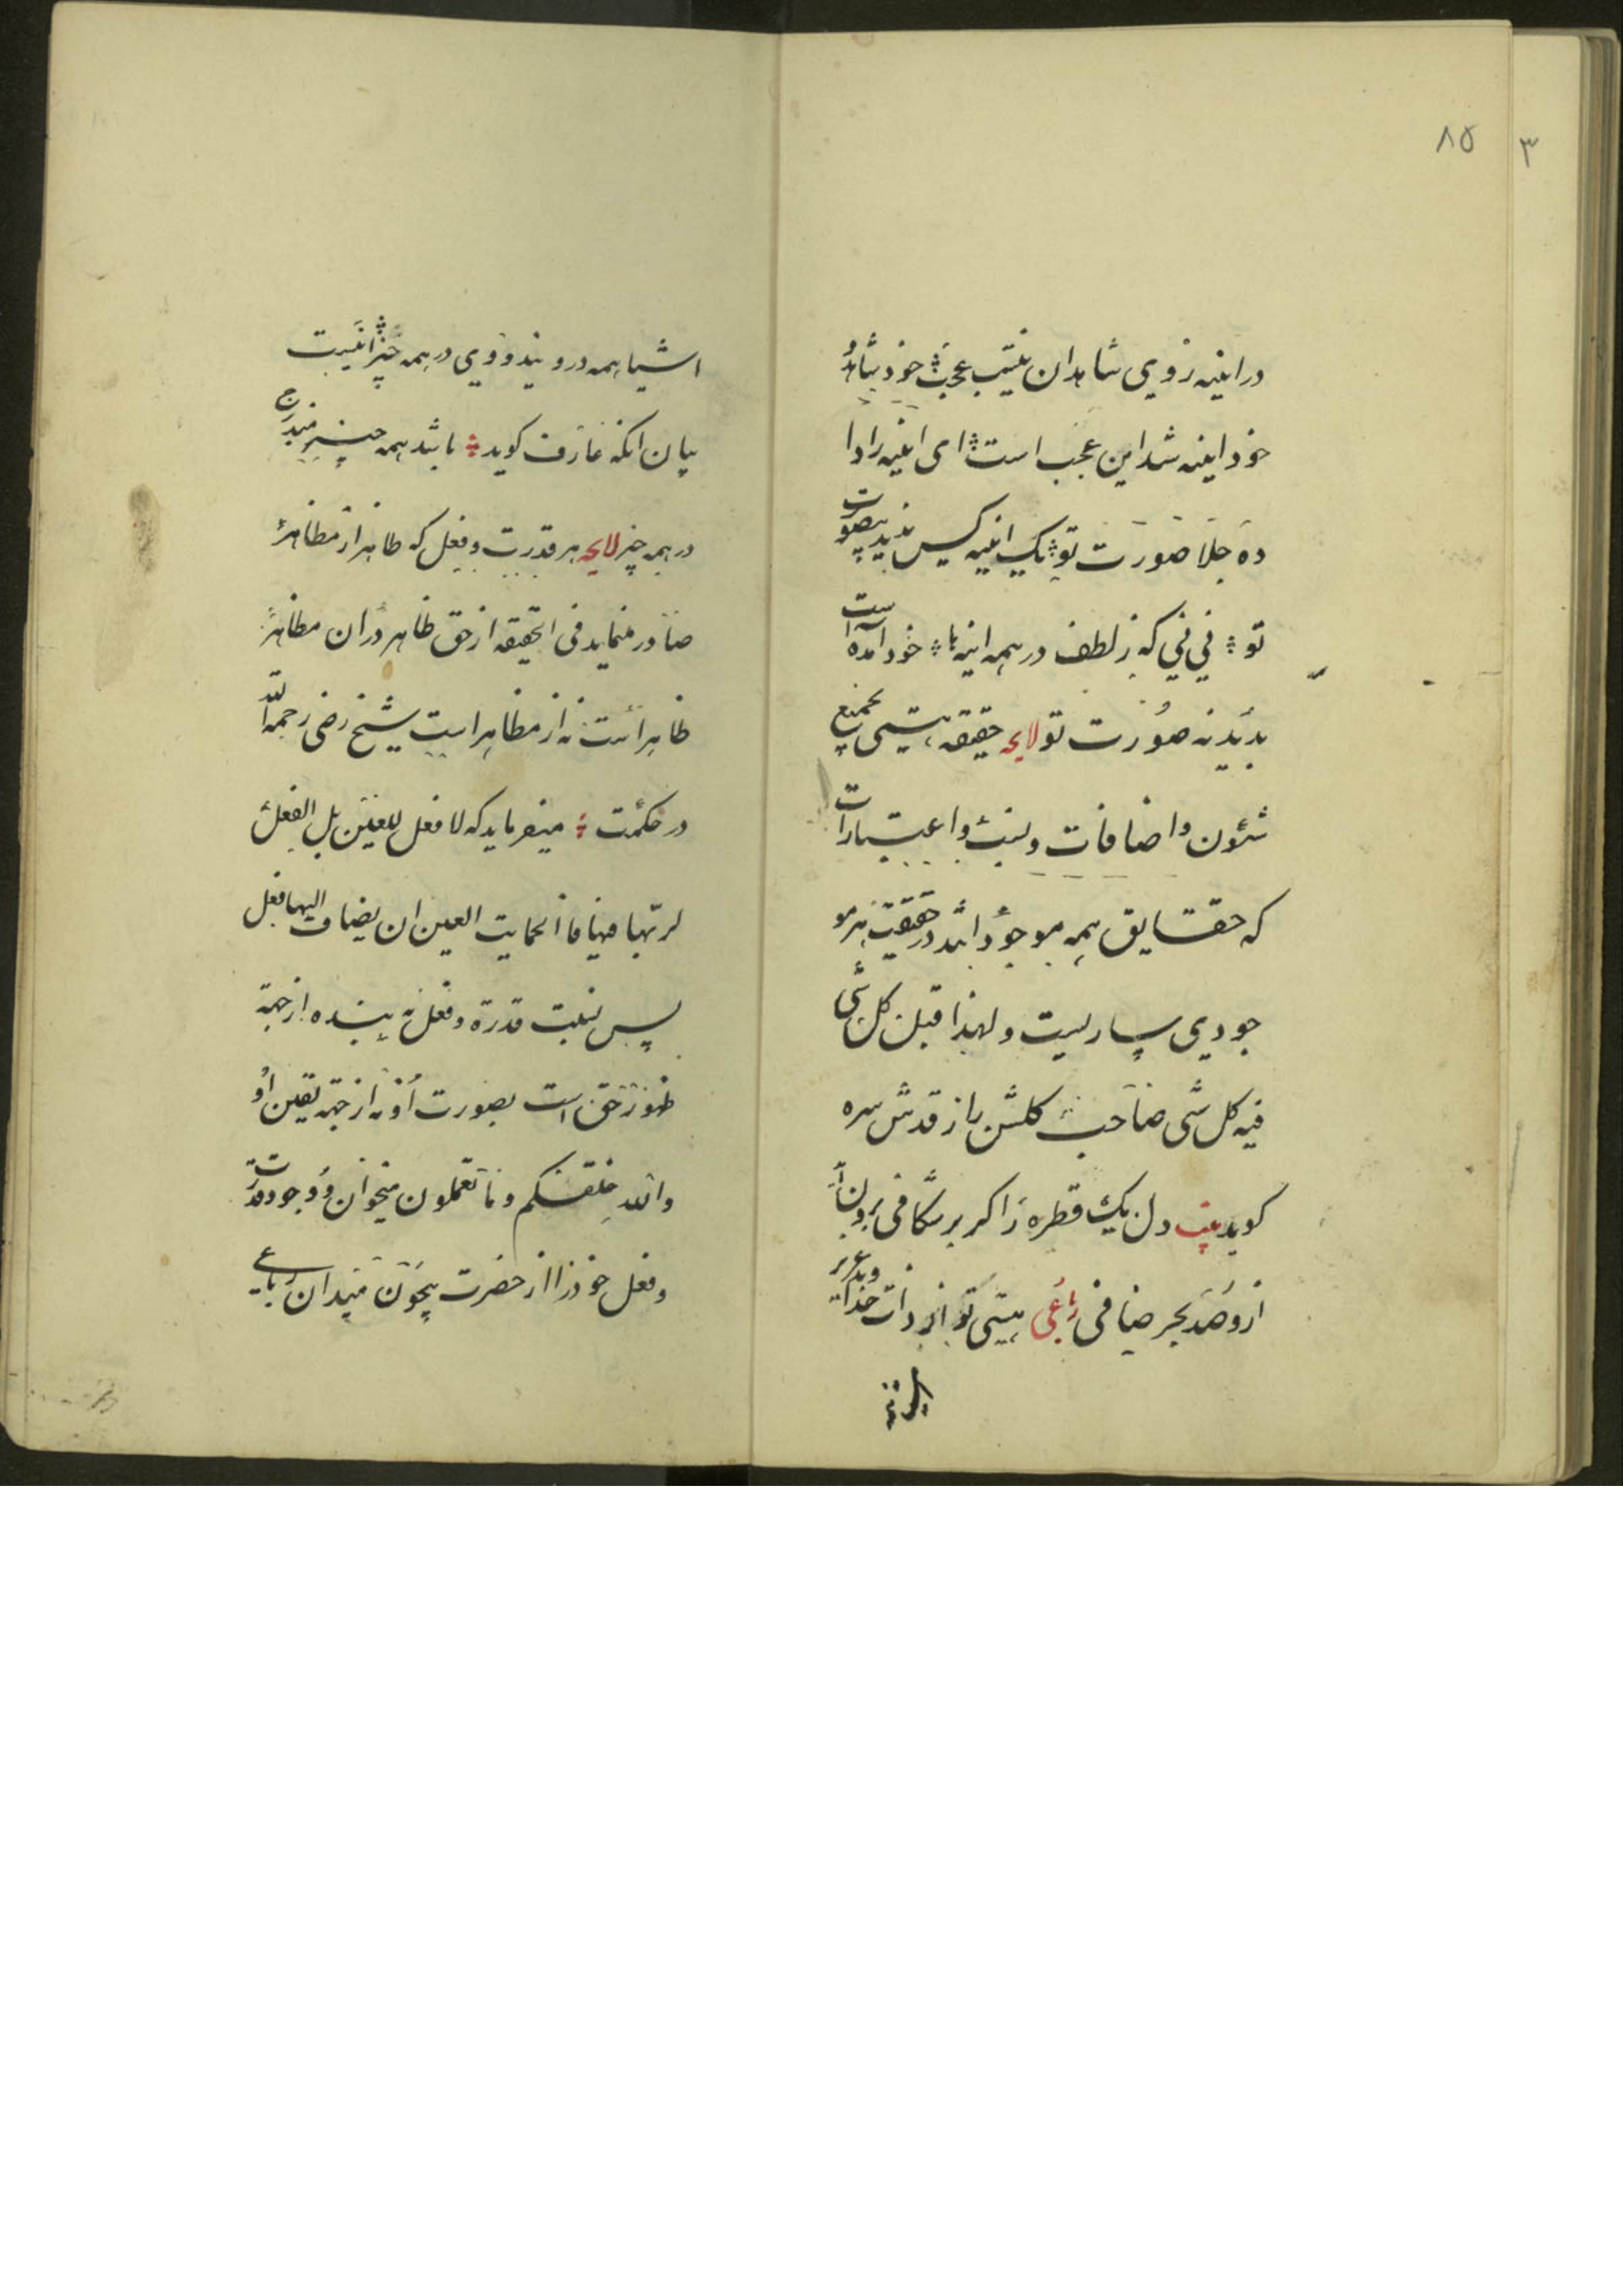 ۸۵
۳
در اینه روی شاهدان نیست عجب خود شاهد و
خود اینه شد این عجب است ای اینه را دا
ده جلا صورت تو یک اینه کس ندید بیصورت
تو نی نی که ز لطف در همه اینه‌ها خود آمده است
بدیدنه صورت تو لایحه حقیقة هستی بجمیع
شئون و اضافات و نسب و اعتبارات
که حقایق همه موجوداتند در حقیقت هر مو
جودی ساریست ولهذا قیل کل شی
فیه کل شی صاحب کلشن راز قدس سره
کوید بیت دل یک قطره را کر برشکافی برون آید
ازو صد بحر صافی رباعی هستی که بود ذات خداوند عزیز
اشیا همه در ویند و وی در همه چیز اینست
بیان انکه عارف کوید باشد همه چیز مندرج
در همه چیز لایحه هر قدرت و فعل که ظاهر از مظاهر
صادر مینماید فی الحقیقه از حق ظاهر در ان مظاهر
ظاهر است نه از مظاهر است شیخ رضی رحمه الله
در حکمت میفرماید که لا فعل للعین بل الفعل
لربها فیها فاطمانت العین ان یضاف الیها فعل
پس نسبت قدرة و فعل به بنده از جهة
ظهور حق است بصورت او نه از جهة تعین او
والله خلقکم وما تعملون میخوان و وجود و قدرت
و فعل خود را از حضرت بیچون میدان رباعی